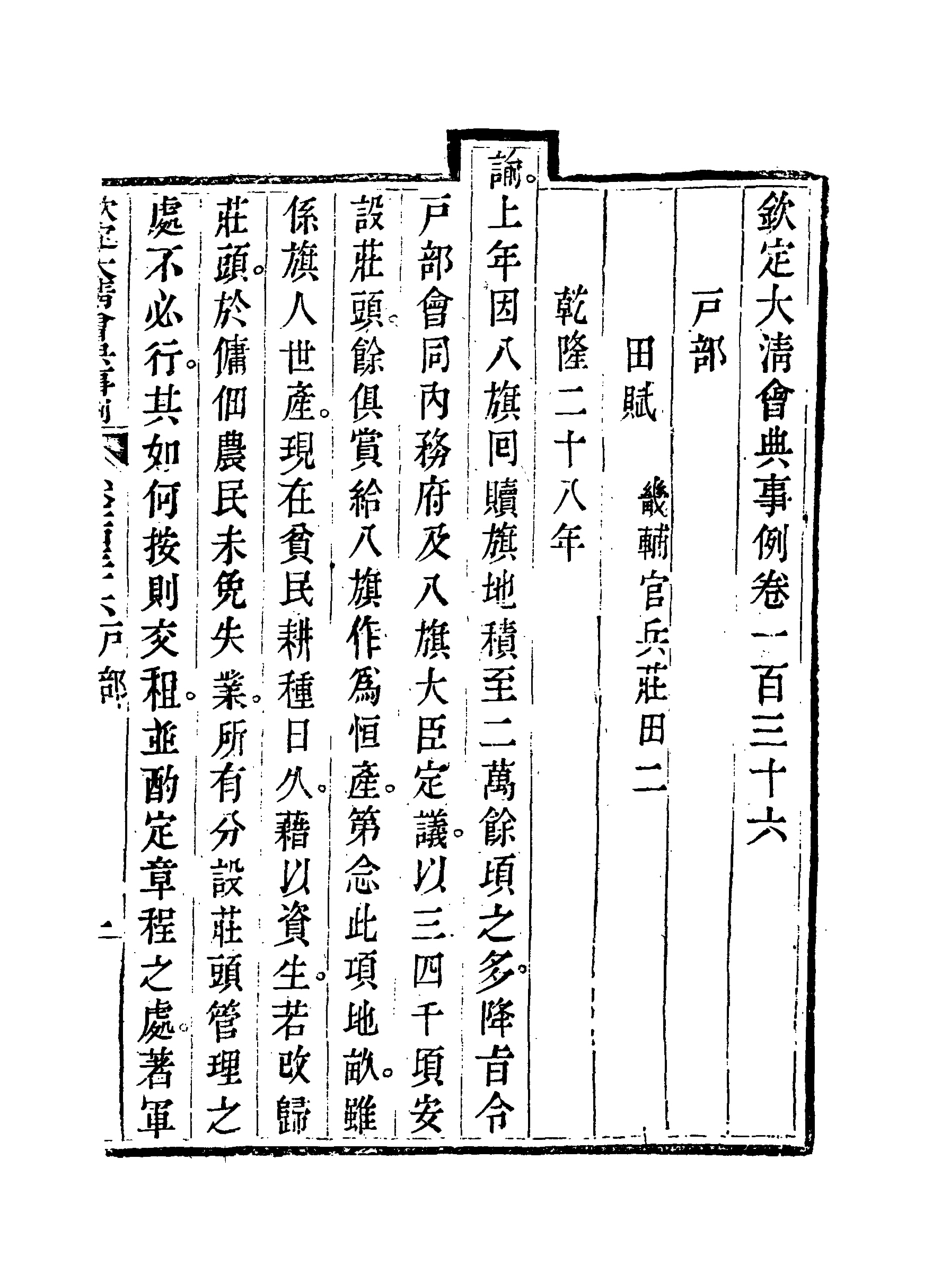 欽定大清會典事例卷一百三十六
戸部
田賦　畿輔官兵莊田二
乾隆二十八年
諭。上年因八旗囘贖旗地積至二萬餘頃之多。降旨令
戸部會同內務府及八旗大臣定議。以三四千頃安
設莊頭。餘俱賞給八旗作爲恒產。第念此項地畝。雖
係旗人世產。現在貧民耕種日久。藉以資生。若改歸
莊頭。於傭佃農民未免失業。所有分設莊頭管理之
處不必行。其如何按則交租。並酌定章程之處。著軍
欽定大清會典事例
戸部
一